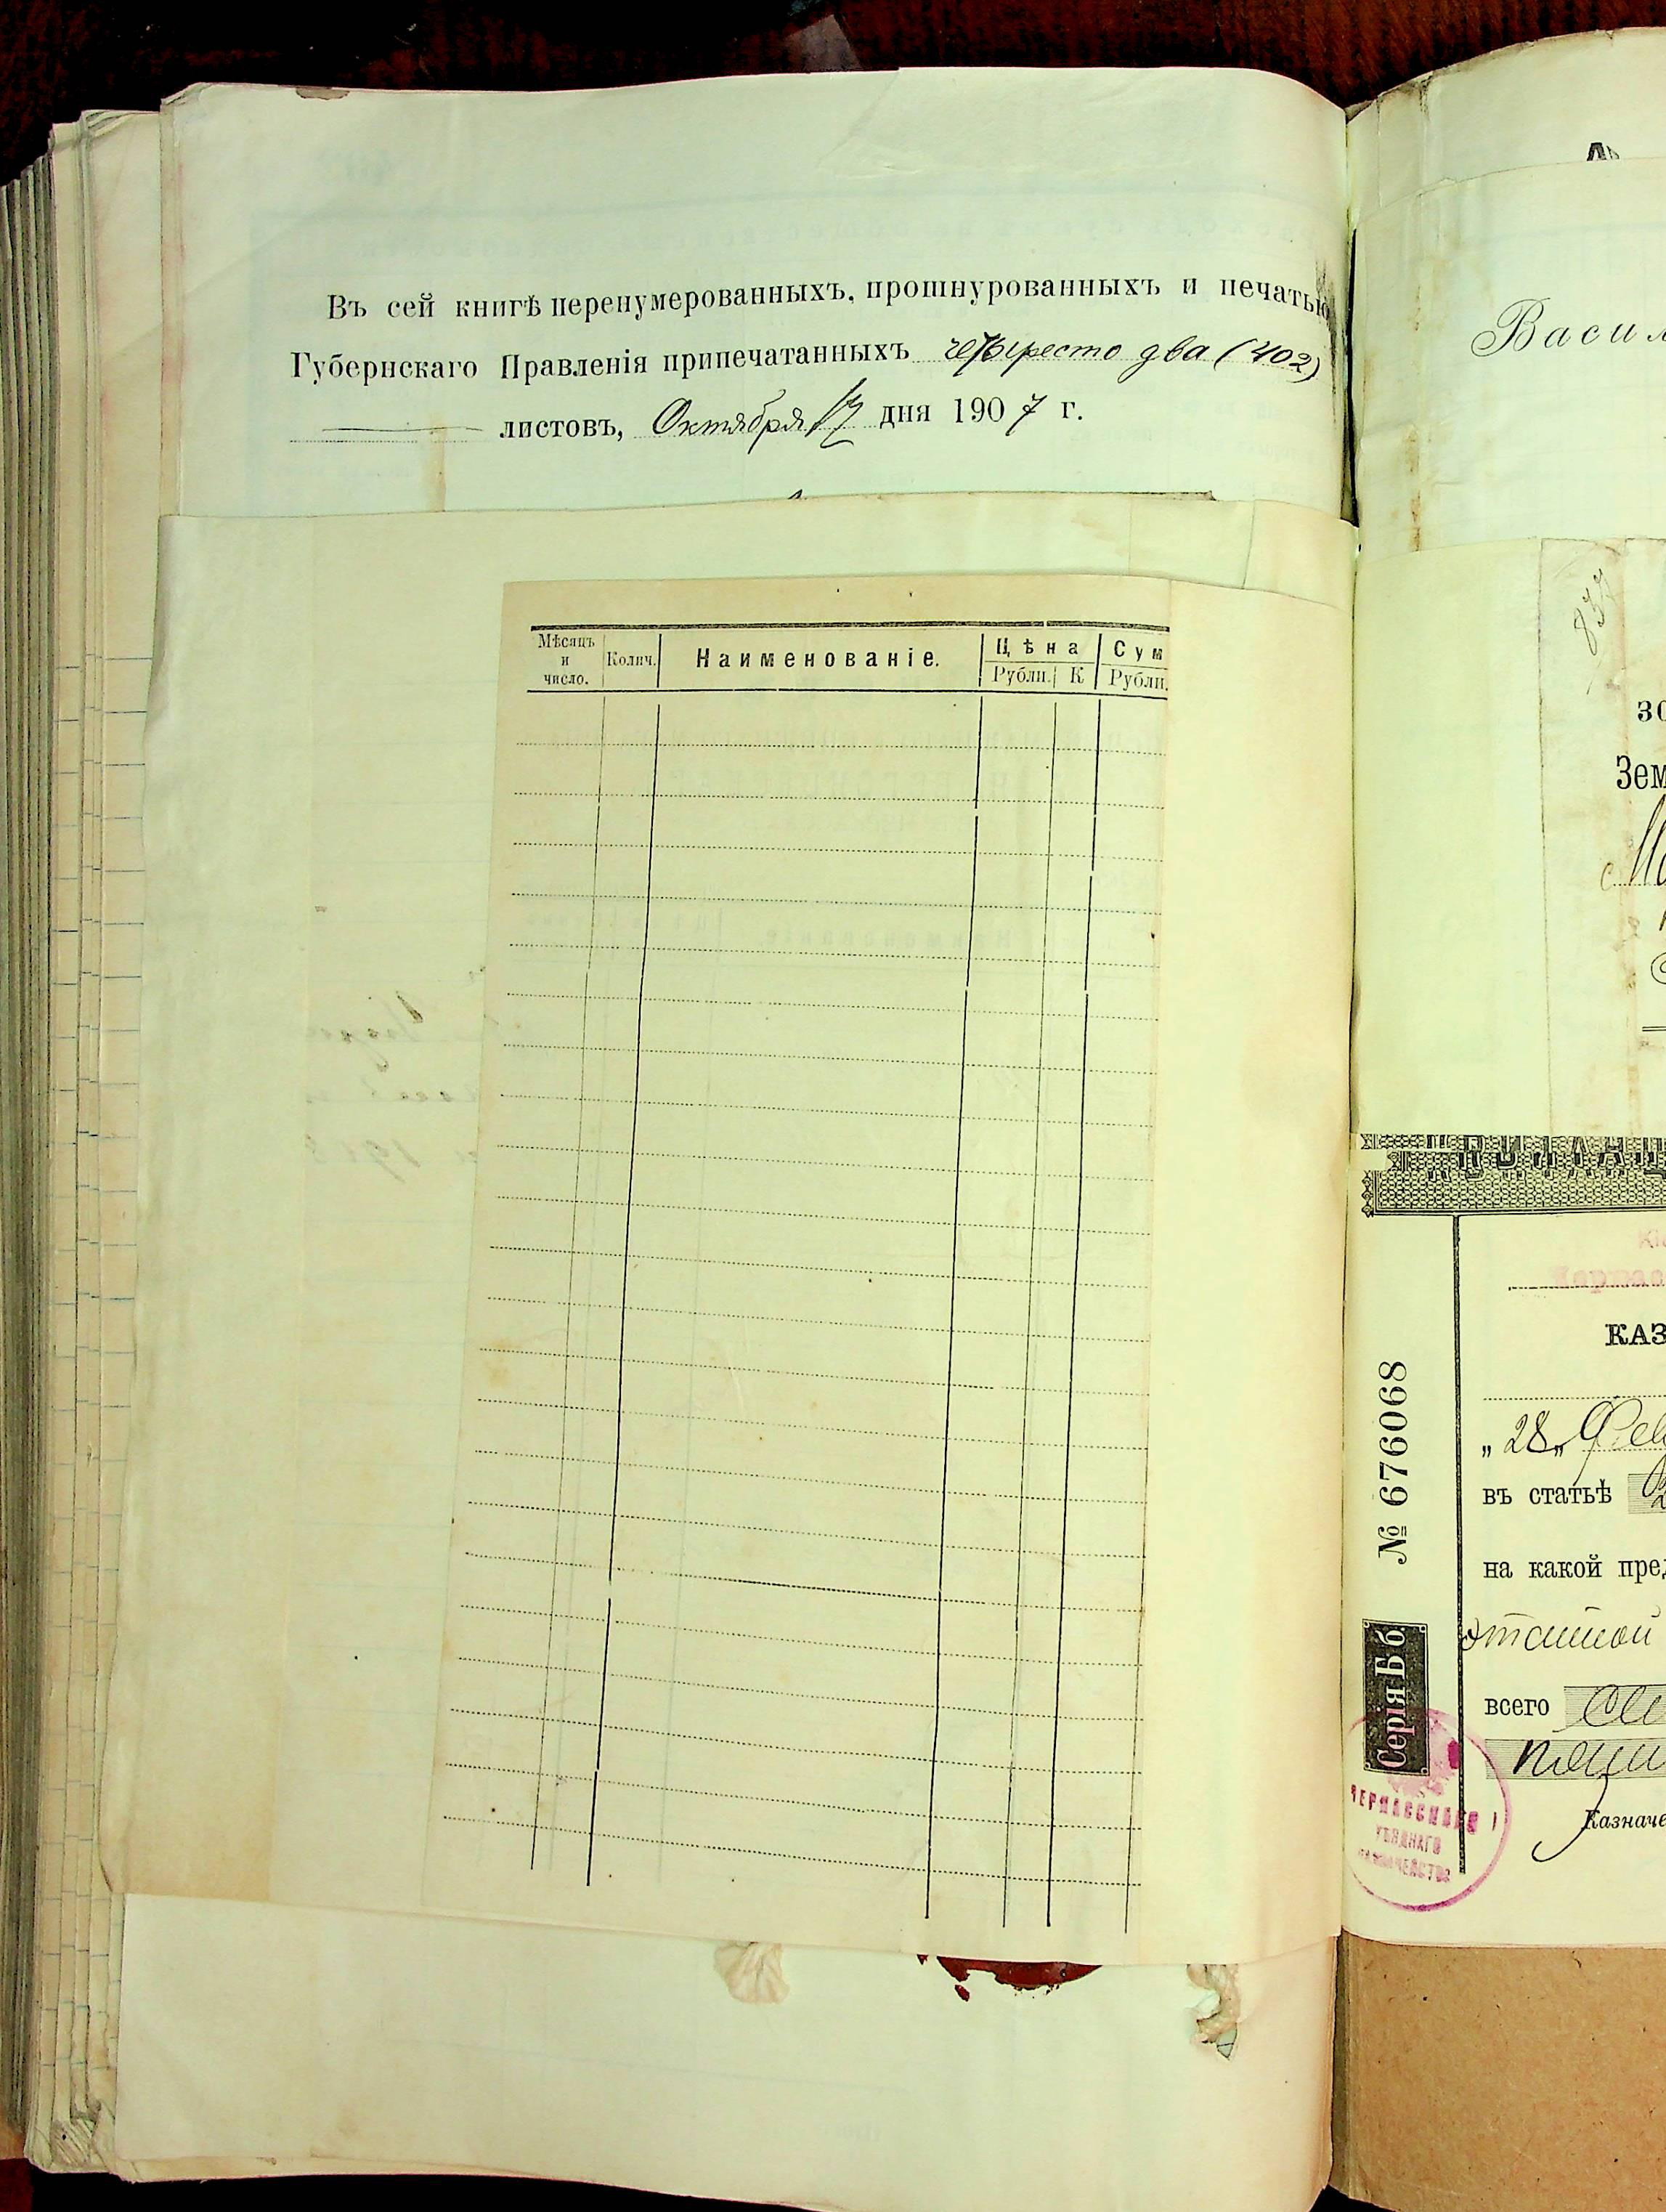 Въ сей книгѣ перенумерованныхъ, прошнурованныхъ и печатью
Губернскаго Правленія припечатанныхъ четыресто два (402)
листовъ, Октября 17 дня 1907 г.
Мѣсяцъ и число.
Колич.
Наименованіе.
Цѣна
Рубли. К
Сум
Рубли.
Васил
837
Зем
КВИТАНЦ
КАЗ
№ 676068
"28" Фев
въ статьѣ
на какой пред
этапной
всего
Серія Бб
Казначе
ЧЕРКАССКАГО
УѢЗДНАГО
КАЗНАЧЕЙСТВО